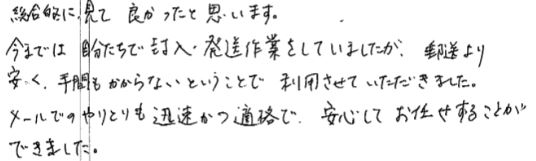 総合的に見て 良かったと思います。
今までは 自分たちで封入・発送作業をしていましたが、郵送より
安く、手間もかからないということで 利用させていただきました。
メールでのやりとりも 迅速かつ適格で、安心して お任せすることが
できました。